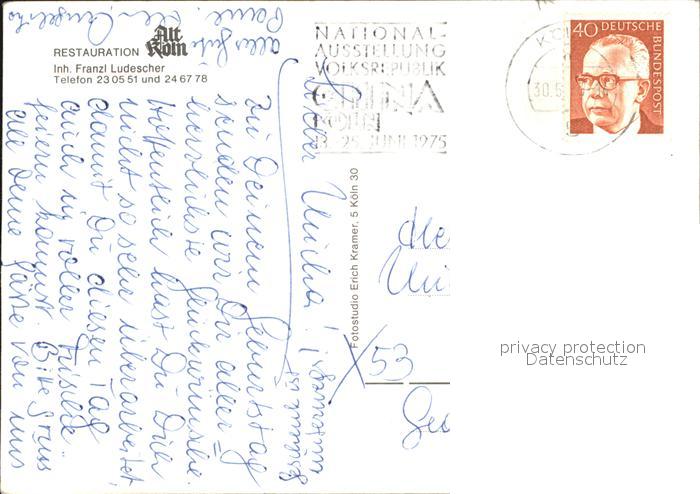 RESTAURATION Alt Köln
Inh. Franzl Ludescher
Telefon 23 05 51 und 24 67 78
NATIONAL-
AUSSTELLUNG
VOLKSREPUBLIK
CHINA
KÖLN
25. JUNI 1975
40 DEUTSCHE BUNDESPOST
30.5
Fotostudio Erich Kramer, 5 Köln 30
Lieber Micha!
Zu Deinem Geburtstag
senden wir Dir aller-
herzlichste Glückwünsche.
Hoffentlich hast Du Dich
nicht so sehr überarbeitet,
damit Du diesen Tag
auch in voller Frische
feiern kannst. Bitte grüss
alle Deine Gäste von uns
alles Gute
53
privacy protection
Datenschutz